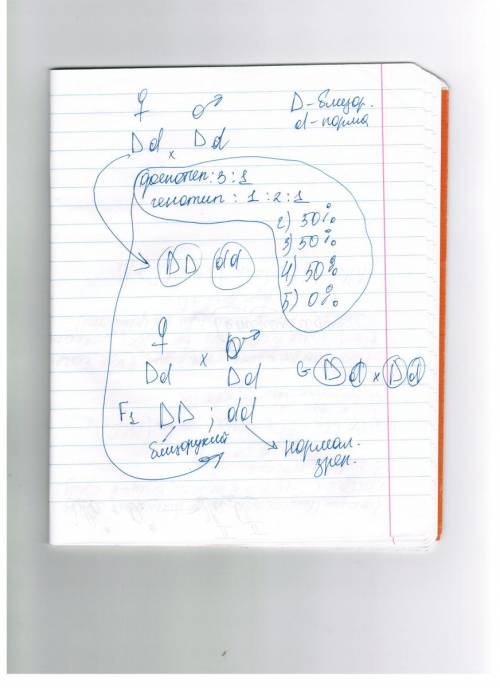 ♀ ♂
Dd x Dd
D - близор.
d - норма
фенотип: 3:1
генотип: 1:2:1
2) 50%
3) 50%
4) 50%
5) 0%
DD dd
♀ x ♂
Dd Dd
G D d x D d
F1 DD ; dd
близорукий
нормал.
зрен.